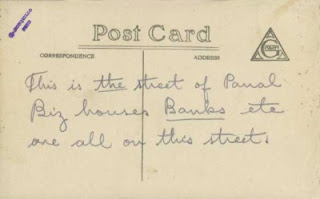 Post Card
CORRESPONDENCE
ADDRESS
This is the street of Panal
Biz houses Banks etc
are all on this street.